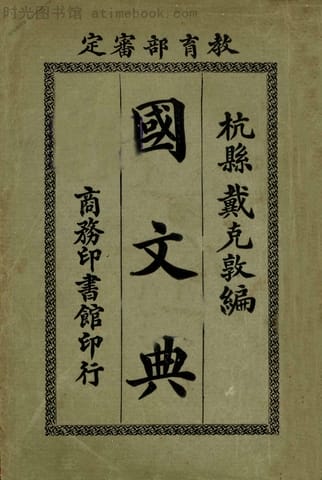 时光图书馆 atimebook.com
教育部審定
杭縣戴克敦編
國文典
商務印書館印行